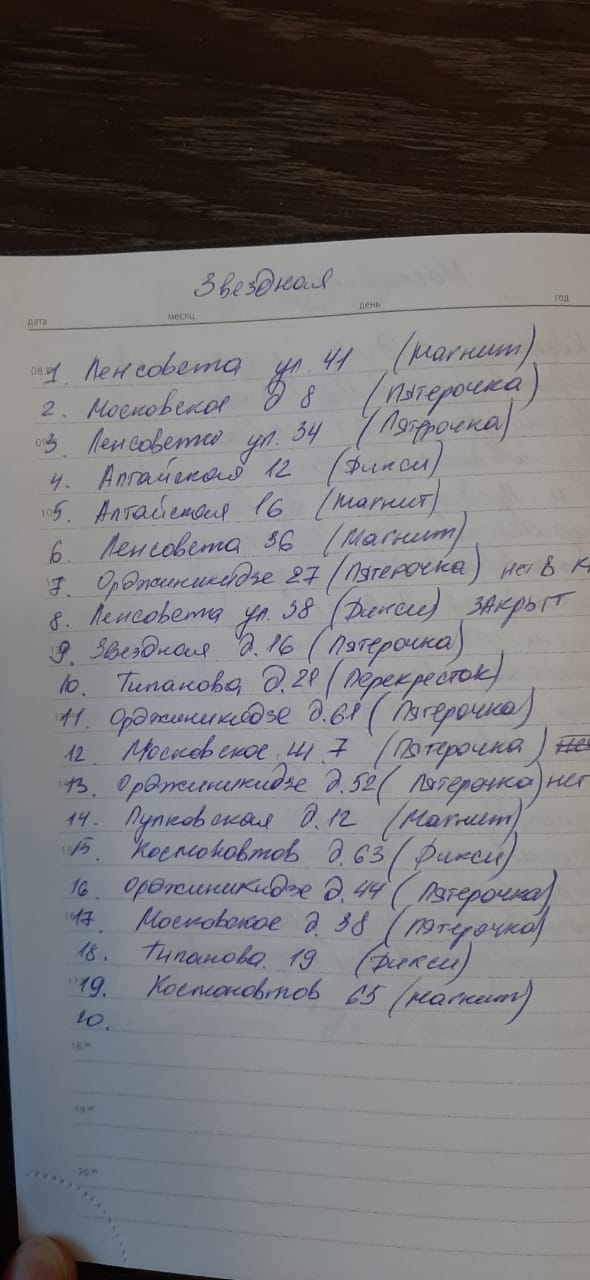 Звездная
дата месяц день год
1. Ленсовета ул. 41 (Магнит)
2. Московское д 8 (Пятерочка)
3. Ленсовета ул. 34 (Пятерочка)
4. Алтайская 12 (Фикси)
5. Алтайская 16 (Магнит)
6. Ленсовета 36 (Магнит)
7. Орджиникидзе 27 (Пятерочка) нет в
8. Ленсовета ул. 38 (Фикси) ЗАКРЫТ
9. Звездная д. 16 (Пятерочка)
10. Типанова, д. 21 (Перекресток)
11. Орджиникидзе д. 61 (Пятерочка)
12. Московское ш. 7 (Пятерочка)
13. Орджиникидзе д. 52 (Пятерочка) нет
14. Пулковская д. 12 (Магнит)
15. Космоновтов д. 63 (Фикси)
16. Орджиникидзе д. 44 (Пятерочка)
17. Московское д. 38 (Пятерочка)
18. Типанова 19 (Фикси)
19. Космоновтов 65 (Магнит)
20.
18 00
19 00
20 00